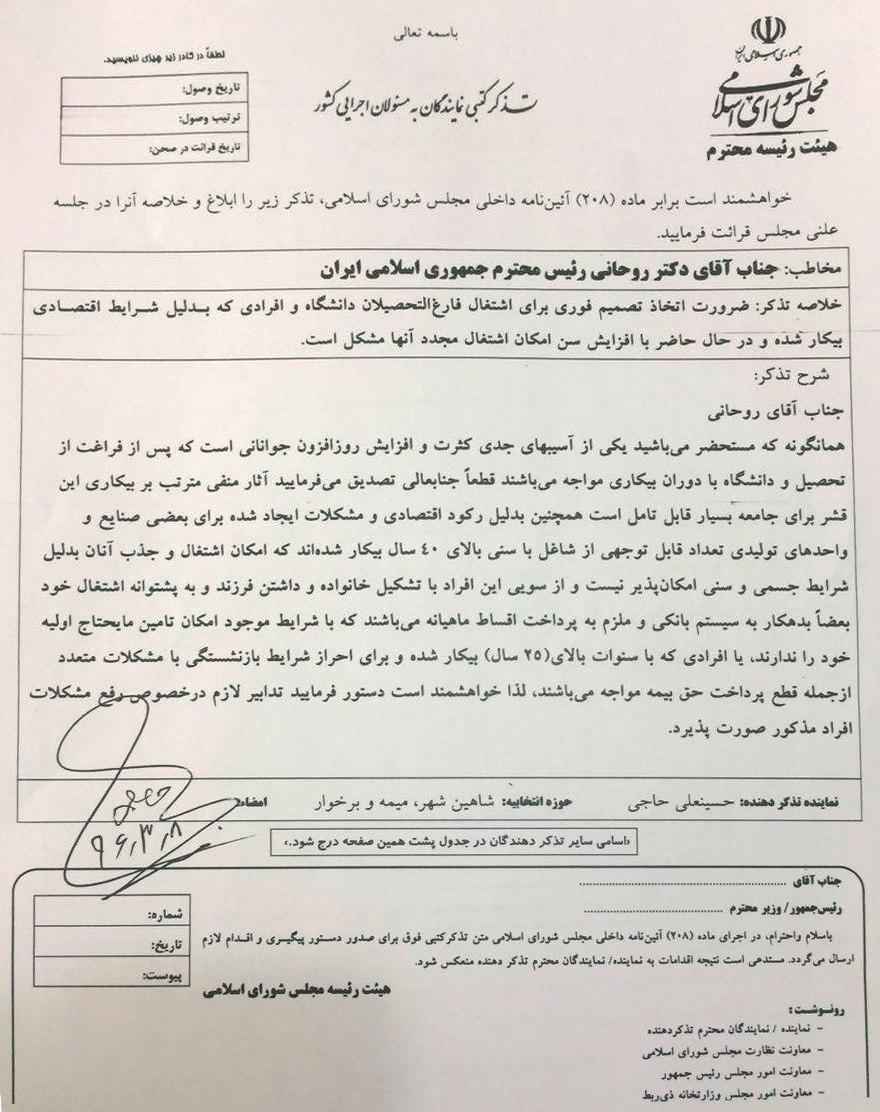 باسمه تعالی
جمهوری اسلامی ایران
مجلس شورای اسلامی
هیئت رئیسه محترم
تذکر کتبی نمایندگان به مسئولان اجرایی کشور
لطفاً در کادر زیر چیزی ننویسید.
تاریخ وصول:
ترتیب وصول:
تاریخ قرائت در صحن:
خواهشمند است برابر ماده (۲۰۸) آئین‌نامه داخلی مجلس شورای اسلامی، تذکر زیر را ابلاغ و خلاصه آنرا در جلسه
علنی مجلس قرائت فرمایید.
مخاطب: جناب آقای دکتر روحانی رئیس محترم جمهوری اسلامی ایران
خلاصه تذکر: ضرورت اتخاذ تصمیم فوری برای اشتغال فارغ‌التحصیلان دانشگاه و افرادی که بدلیل شرایط اقتصادی
بیکار شده و در حال حاضر با افزایش سن امکان اشتغال مجدد آنها مشکل است.
شرح تذکر:
جناب آقای روحانی
همانگونه که مستحضر می‌باشید یکی از آسیبهای جدی کثرت و افزایش روزافزون جوانانی است که پس از فراغت از
تحصیل و دانشگاه با دوران بیکاری مواجه می‌باشند قطعاً جنابعالی تصدیق می‌فرمایید آثار منفی مترتب بر بیکاری این
قشر برای جامعه بسیار قابل تامل است همچنین بدلیل رکود اقتصادی و مشکلات ایجاد شده برای بعضی صنایع و
واحدهای تولیدی تعداد قابل توجهی از شاغل با سنی بالای ۴۰ سال بیکار شده‌اند که امکان اشتغال و جذب آنان بدلیل
شرایط جسمی و سنی امکان‌پذیر نیست و از سویی این افراد با تشکیل خانواده و داشتن فرزند و به پشتوانه اشتغال خود
بعضاً بدهکار به سیستم بانکی و ملزم به پرداخت اقساط ماهیانه می‌باشند که با شرایط موجود امکان تامین مایحتاج اولیه
خود را ندارند، یا افرادی که با سنوات بالای(۲۵ سال) بیکار شده و برای احراز شرایط بازنشستگی با مشکلات متعدد
ازجمله قطع پرداخت حق بیمه مواجه می‌باشند، لذا خواهشمند است دستور فرمایید تدابیر لازم درخصوص رفع مشکلات
افراد مذکور صورت پذیرد.
نماینده تذکر دهنده: حسینعلی حاجی حوزه انتخابیه: شاهین شهر، میمه و برخوار امضاء:
۹۶٫۳٫۸
«اسامی سایر تذکر دهندگان در جدول پشت همین صفحه درج شود.»
جناب آقای ........................
رئیس‌جمهور/ وزیر محترم ........................
باسلام واحترام، در اجرای ماده (۲۰۸) آئین‌نامه داخلی مجلس شورای اسلامی متن تذکرکتبی فوق برای صدور دستور پیگیری و اقدام لازم
ارسال می‌گردد. مستدعی است نتیجه اقدامات به نماینده/ نمایندگان محترم تذکر دهنده منعکس شود.
هیئت رئیسه مجلس شورای اسلامی
شماره:
تاریخ:
پیوست:
رونوشت:
- نماینده / نمایندگان محترم تذکردهنده
- معاونت نظارت مجلس شورای اسلامی
- معاونت امور مجلس رئیس جمهور
- معاونت امور مجلس وزارتخانه ذی‌ربط